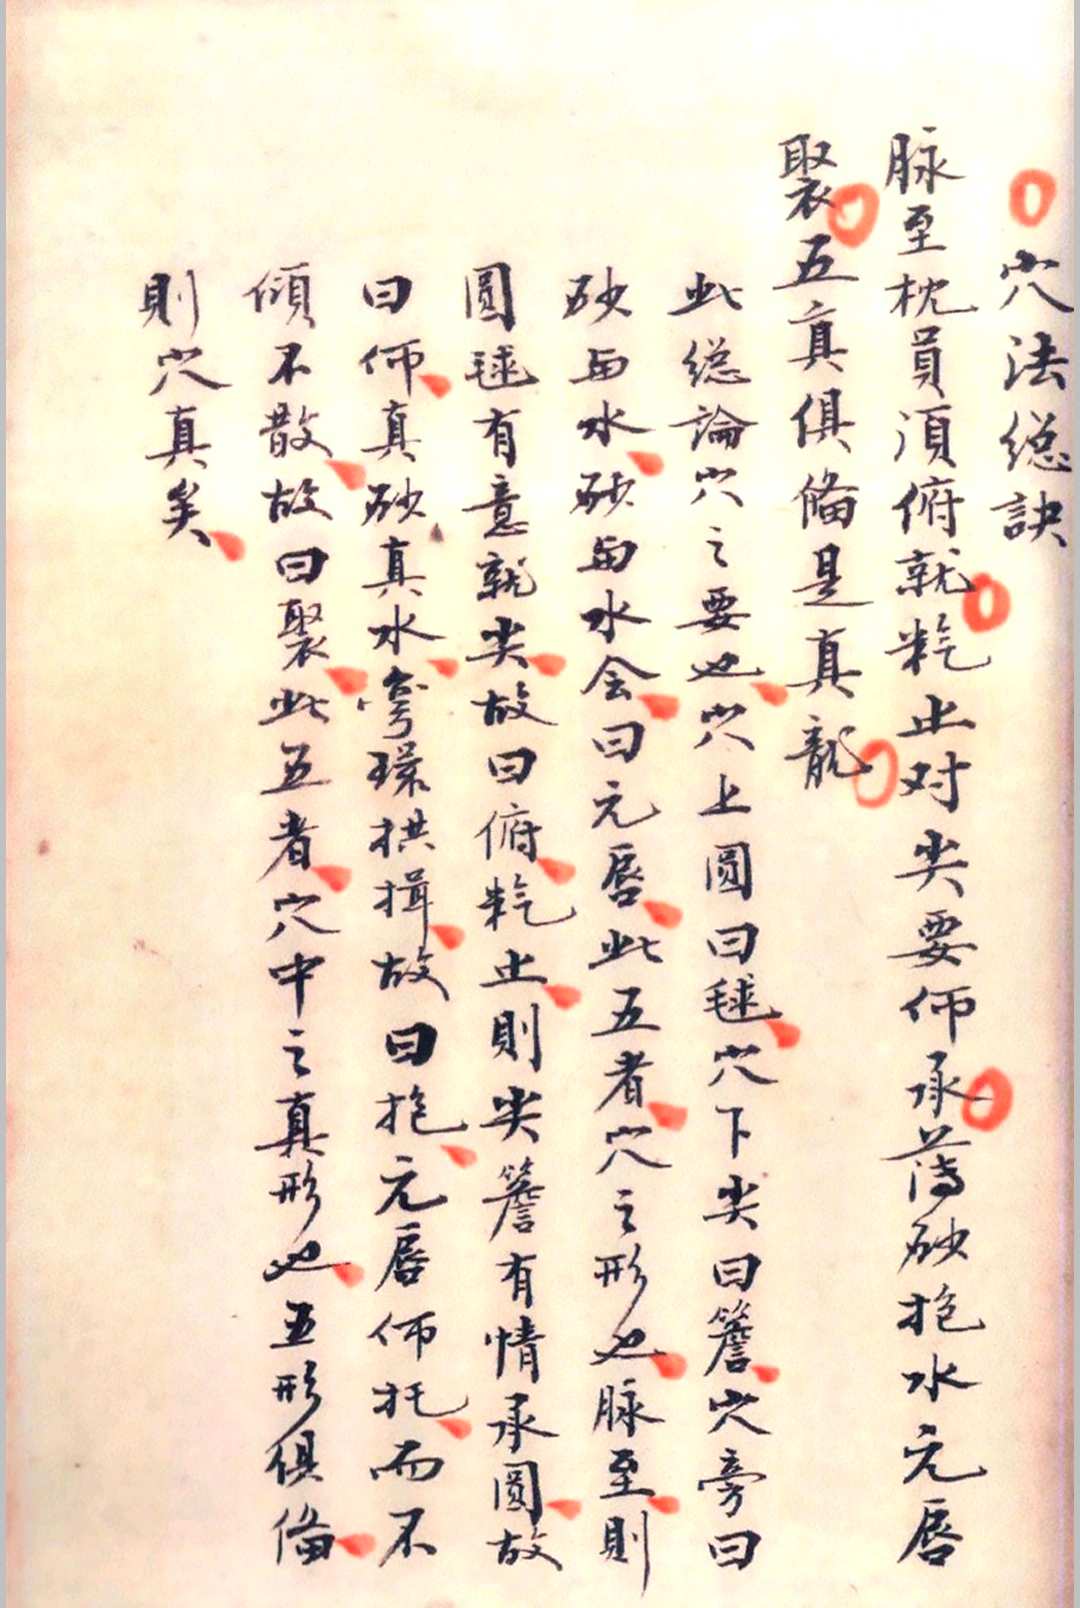 穴法総訣
脉至枕員湏俯就粃止对尖要𠇗承薄砂抱水元唇
聚五真俱俻是真龍
此総論穴之要也穴上圓曰毬穴下尖曰簷穴旁曰
砂与水砂与水会曰元唇此五者穴之形也脉至則
圓毬有意就尖故曰俯粃止則尖簷有情承圓故
曰𠇗真砂真水弯環拱揖故曰抱元唇𠇗托而不
傾不散故曰聚此五者穴中之真形也五形俱俻
則穴真矣